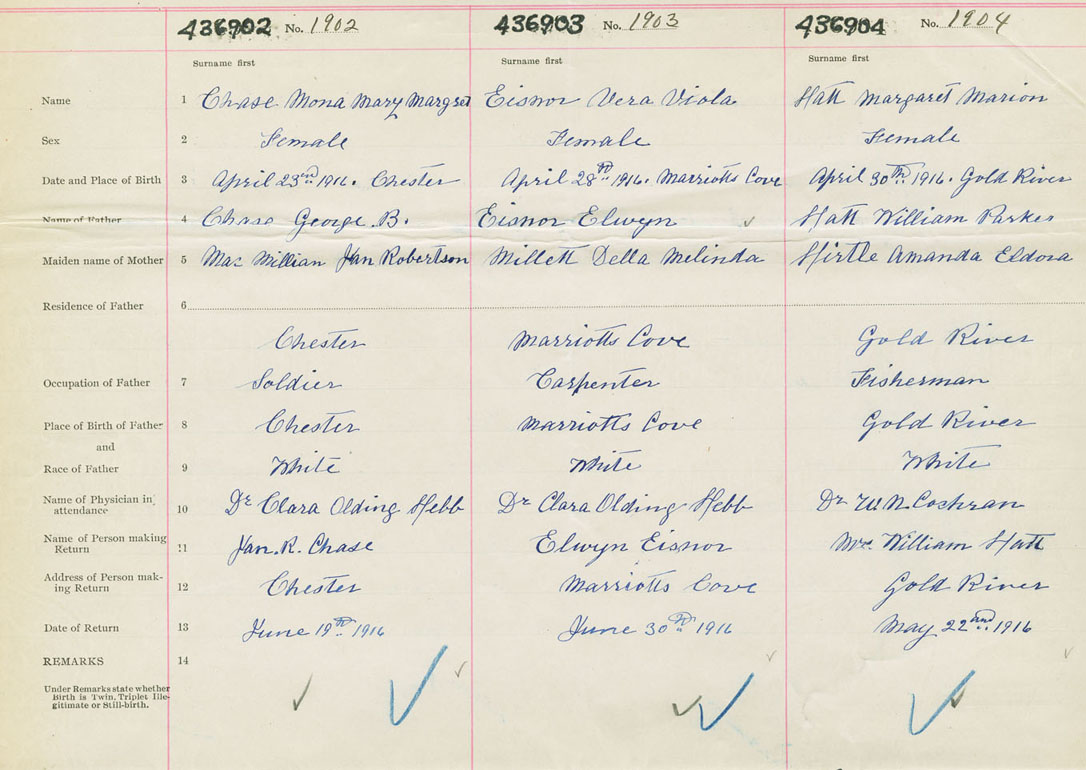 436902 No. 1902 436903 No. 1903 436904 No. 1904
Surname first Surname first Surname first
Name 1 Chase Mona Mary Margret Eisnor Vera Viola Hatt Margaret Marion
Sex 2 Female Female Female
Date and Place of Birth 3 April 23rd 1916. Chester April 28th 1916. Marriotts Cove April 30th 1916. Gold River
Name of Father 4 Chase George. B. Eisnor Elwyn Hatt William Parker
Maiden name of Mother 5 Mac Millian Jan Robertson Millett Della Melinda Hirtle Amanda Eldora
Residence of Father 6
Chester Marriotts Cove Gold River
Occupation of Father 7 Soldier Carpenter Fisherman
Place of Birth of Father 8 Chester Marriotts Cove Gold River
and
Race of Father 9 White White White
Name of Physician in
attendance 10 Dr Clara Olding Hebb Dr Clara Olding Hebb Dr W. N. Cochran
Name of Person making
Return 11 Jan. R. Chase Elwyn Eisnor William Hatt
Address of Person mak-
ing Return 12 Chester Marriotts Cove Gold River
Date of Return 13 June 19th 1916 June 30th 1916 May 22nd 1916
REMARKS 14
Under Remarks state whether
Birth is Twin, Triplet Ille-
gitimate or Still-birth.